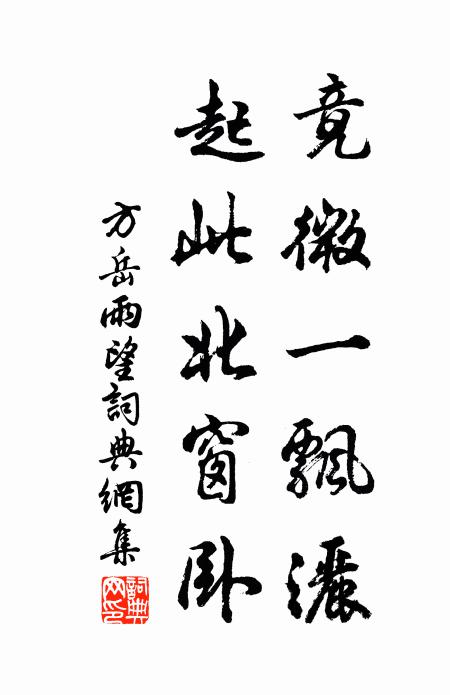 竟微一飄灑
起此北窗卧
方岳雨望詞典網集
詞典网印